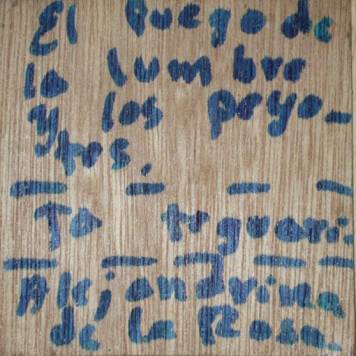 El fuego de
la lumbre
y los peyo-
ytes.
Ta teguari.
Alejandrina
de la Rosa.